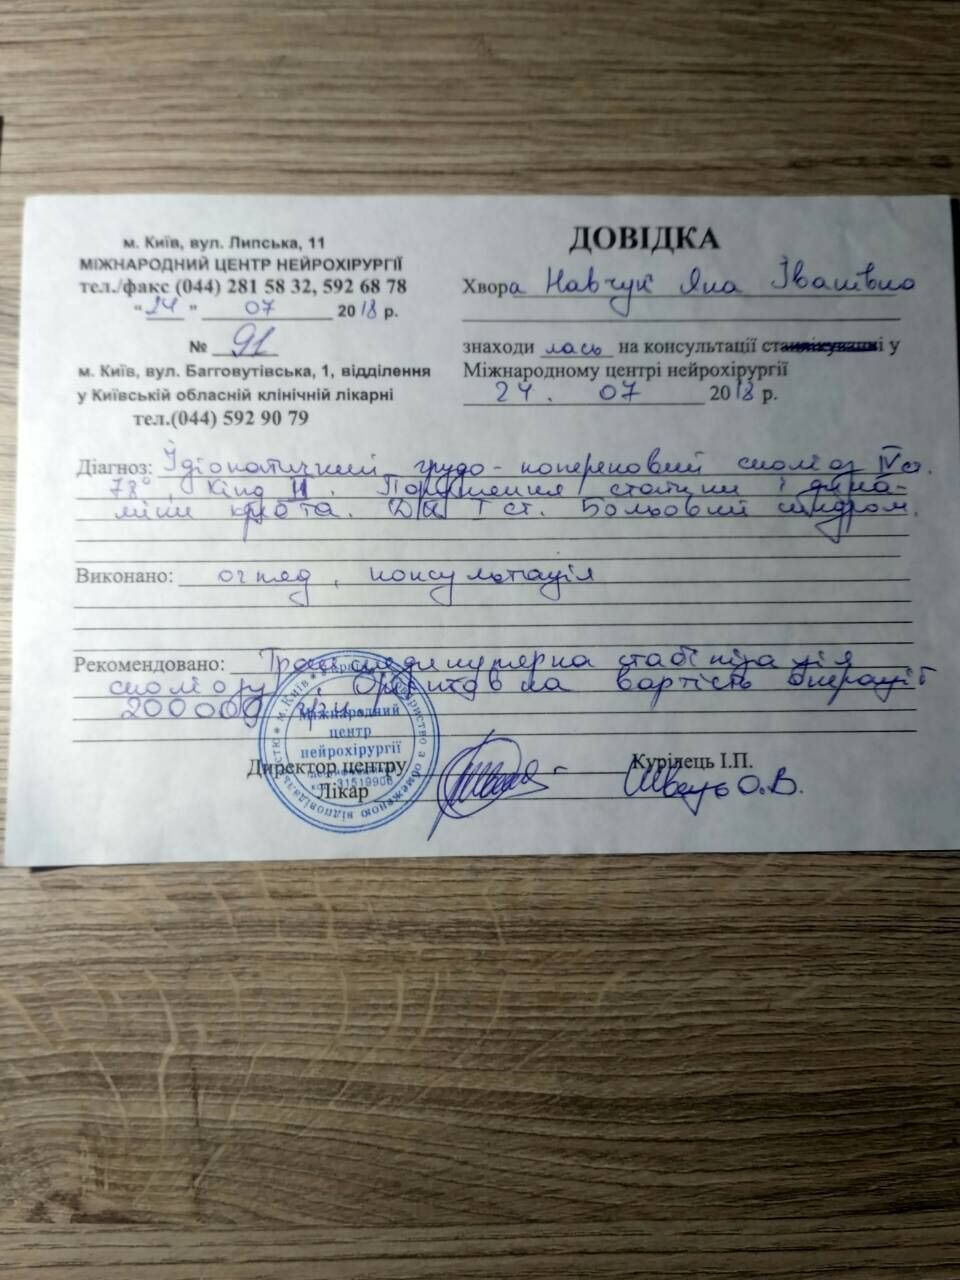 м. Київ, вул. Липська, 11
МІЖНАРОДНИЙ ЦЕНТР НЕЙРОХІРУРГІЇ
тел./факс (044) 281 58 32, 592 68 78
"24" 07 2018 р.
№ 91
м. Київ, вул. Багговутівська, 1, відділення
у Київській обласній клінічній лікарні
тел.(044) 592 90 79
ДОВІДКА
Хвора Навчук Яна Іванівна
знаходилась на консультації у
Міжнародному центрі нейрохірургії
24. 07 2018 р.
Діагноз: Ідіопатичний грудо-поперековий сколіоз IV ст.
78°, King II. Порушення статики і дина-
міки хребта. ДН I ст. Больовий синдром.
Виконано: огляд, консультація
Рекомендовано: Транспедикулярна стабілізація
сколіозу. вартість операції
200000 грн.
Міжнародний
центр
нейрохірургії
31519908
Директор центру Курілець І.П.
Лікар О.В.